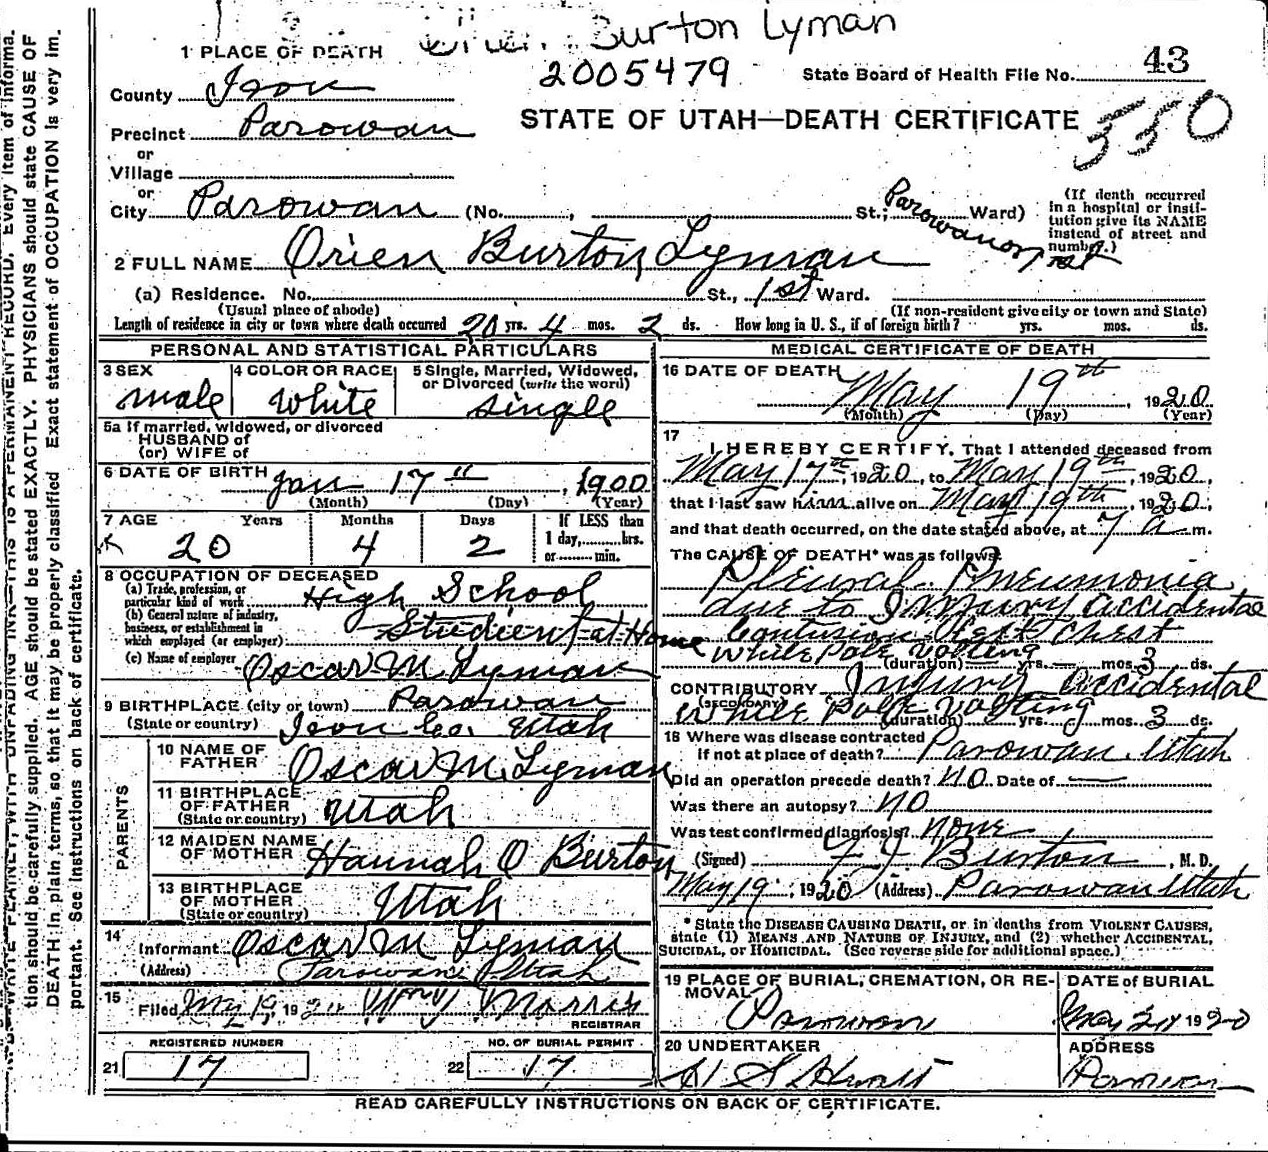 Burton Lyman
1 PLACE OF DEATH
2005479
State Board of Health File No. 43
County Iron
STATE OF UTAH—DEATH CERTIFICATE
550
Precinct Parowan
or
Village
or
City Parowan (No. , St.; Parowan Ward)
(If death occurred in a hospital or insti-
tution give its NAME
instead of street and
number.)
2 FULL NAME Orien Burton Lyman
(a) Residence. No. St., 1st Ward.
(Usual place of abode) (If non-resident give city or town and State)
Length of residence in city or town where death occurred 20 yrs. 4 mos. 2 ds. How long in U. S., if of foreign birth? yrs. mos. ds.
PERSONAL AND STATISTICAL PARTICULARS
3 SEX male
4 COLOR OR RACE White
5 Single, Married, Widowed,
or Divorced (write the word)
single
5a If married, widowed, or divorced
HUSBAND of
(or) WIFE of
6 DATE OF BIRTH Jan 17" , 1900
(Month) (Day) (Year)
7 AGE Years Months Days If LESS than
20 4 2 1 day, hrs.
or min.
8 OCCUPATION OF DECEASED
(a) Trade, profession, or
particular kind of work High School
(b) General nature of industry,
business, or establishment in
which employed (or employer) Student at Home
(c) Name of employer Oscar M Lyman
9 BIRTHPLACE (city or town) Parowan
(State or country) Iron Co. Utah
PARENTS
10 NAME OF
FATHER Oscar M. Lyman
11 BIRTHPLACE
OF FATHER
(State or country) Utah
12 MAIDEN NAME
OF MOTHER Hannah O Burton
13 BIRTHPLACE
OF MOTHER
(State or country) Utah
14
Informant Oscar M Lyman
(Address) Parowan Utah
15
Filed May 19, 1920 Morris
REGISTRAR
REGISTERED NUMBER NO. OF BURIAL PERMIT
21 17 22 17
MEDICAL CERTIFICATE OF DEATH
16 DATE OF DEATH
May 19th , 1920
(Month) (Day) (Year)
17
I HEREBY CERTIFY, That I attended deceased from
May 17th, 1920, to May 19th, 1920,
that I last saw him alive on May 19th, 1920,
and that death occurred, on the date stated above, at 7 a m.
The CAUSE OF DEATH* was as follows:
Pleural Pneumonia
due to Injury accidental
Contusion Chest
While Pole Volting
(duration) yrs. mos. 3 ds.
CONTRIBUTORY Injury accidental
(SECONDARY) While Pole Volting
(duration) yrs. mos. 3 ds.
18 Where was disease contracted
if not at place of death? Parowan. Utah
Did an operation precede death? no Date of —
Was there an autopsy? no
Was test confirmed diagnosis? none
(Signed) Burton , M. D.
May 19, 1920 (Address) Parowan Utah
* State the DISEASE CAUSING DEATH, or in deaths from VIOLENT CAUSES,
state (1) MEANS AND NATURE OF INJURY, and (2) whether ACCIDENTAL,
SUICIDAL, or HOMICIDAL. (See reverse side for additional space.)
19 PLACE OF BURIAL, CREMATION, OR RE-
MOVAL Parowan
DATE of BURIAL
May 21 1920
20 UNDERTAKER
ADDRESS
Parowan
READ CAREFULLY INSTRUCTIONS ON BACK OF CERTIFICATE.
tion should be carefully supplied. AGE should be stated EXACTLY. PHYSICIANS should state CAUSE OF
DEATH in plain terms, so that it may be properly classified. Exact statement of OCCUPATION is very im-
portant. See instructions on back of certificate.